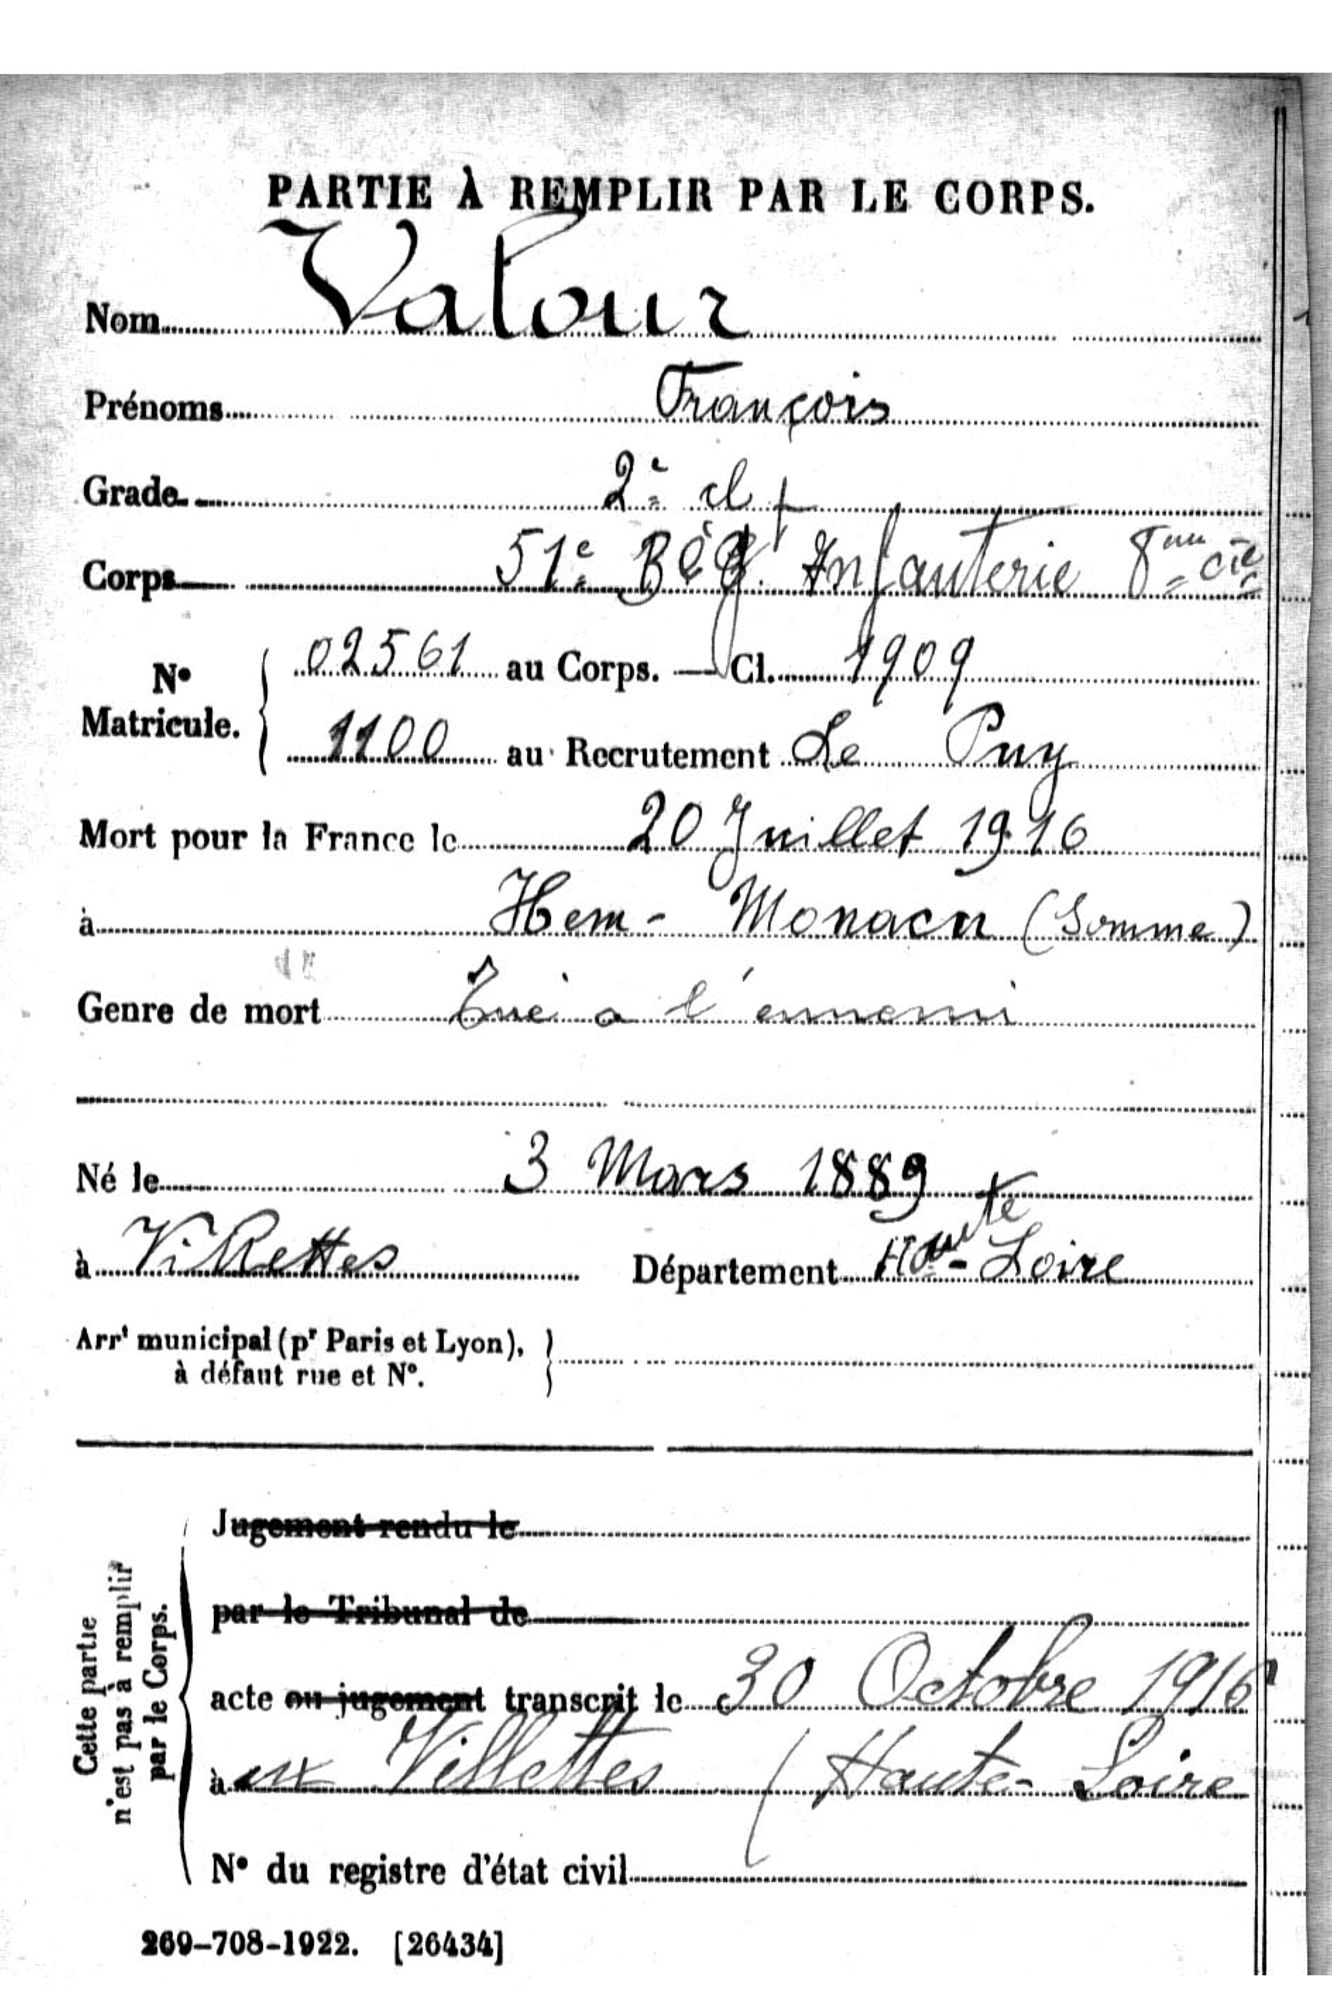 PARTIE À REMPLIR PAR LE CORPS.
Nom Valour
Prénoms François
Grade 2e cl
Corps 51e Régt Infanterie 8eme Cie
No Matricule. 02561 au Corps. — Cl. 1909
1100 au Recrutement Le Puy
Mort pour la France le 20 Juillet 1916
à Hem - Monacu (Somme)
Genre de mort Tué a l'ennemi
Né le 3 Mars 1889
à Villettes Département Haute - Loire
Arrt municipal (pr Paris et Lyon),
à défaut rue et No.
Cette partie
n'est pas à remplir
par le Corps.
Jugement rendu le
par le Tribunal de
acte ou jugement transcrit le 30 Octobre 1916
à ux Villettes (Haute - Loire
No du registre d'état civil
269-708-1922. [26434]